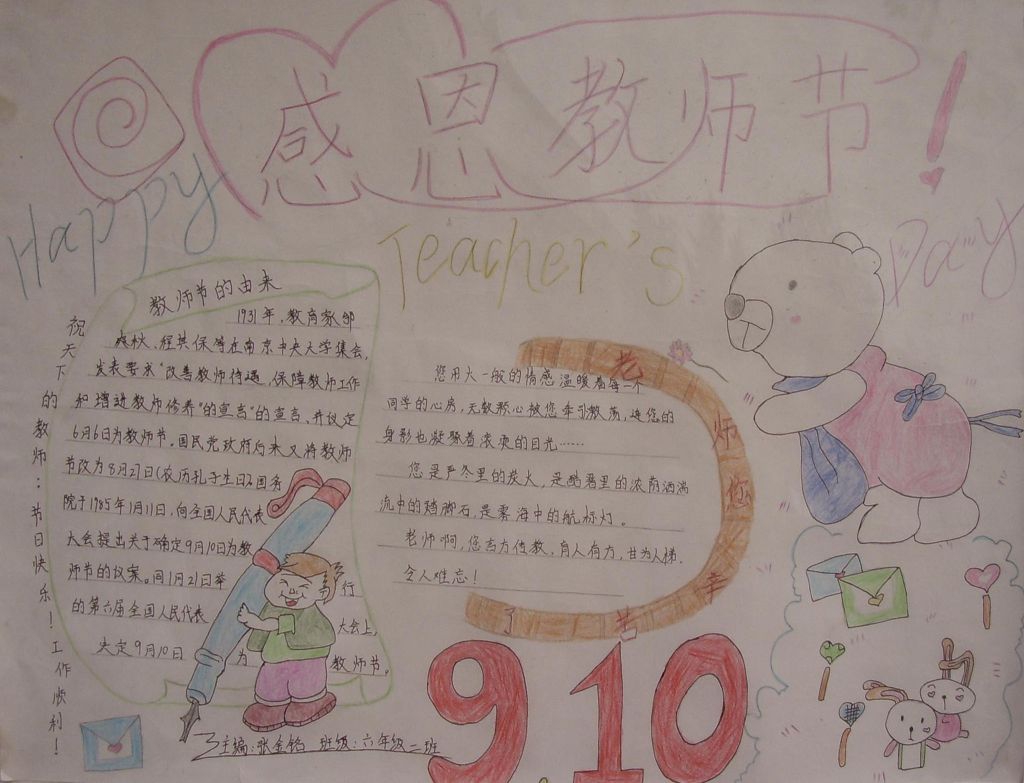 感恩教师节!
Happy Teacher's Day
祝天下的教师:节日快乐!工作顺利!
教师节的由来
1931年,教育家邰
爽秋、程其保等在南京中央大学集会,
发表要求"改善教师待遇,保障教师工作
和增进教师修养"的宣言"的宣言,并议定
6月6日为教师节。国民党政府后来又将教师
节改为8月27日(农历孔子生日)国务
院于1985年1月11日,向全国人民代表
大会提出关于确定9月10日为教
师节的议案。同1月21日举行
的第六届全国人民代表大会上,
决定9月10日为教师节。
您用火一般的情感温暖着每一个
同学的心房,无数颗心被您牵引激荡,连您的
身影也凝聚着滚烫的目光……
您是严冬里的炭火,是酷暑里的浓荫洒湍
流中的踏脚石,是雾海中的航标灯。
老师啊,您言方传教,育人有方,甘为人梯,
令人难忘!
老师您辛苦了
9.10
主编:张金铭 班级:六年级二班